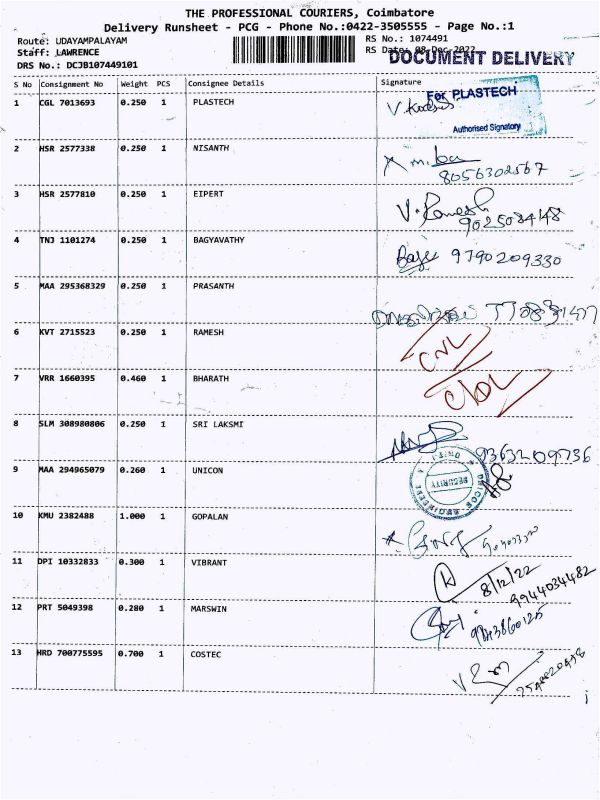 THE PROFESSIONAL COURIERS, Coimbatore
Delivery Runsheet - PCG - Phone No.:0422-3505555 - Page No.:1
Route: UDAYAMPALAYAM RS No.: 1074491
Staff: LAWRENCE RS Date: 08-Dec-2022
DOCUMENT DELIVERY
DRS No.: DCJB107449101
S No Consignment No Weight PCS Consignee Details Signature
1 CGL 7013693 0.250 1 PLASTECH
For PLASTECH
Authorised Signatory
2 HSR 2577338 0.250 1 NISANTH
8056302567
3 HSR 2577810 0.250 1 EIPERT V. Ramesh
9025084148
4 TNJ 1101274 0.250 1 BAGYAVATHY 9790209330
5 MAA 295368329 0.250 1 PRASANTH
6 KVT 2715523 0.250 1 RAMESH CNL
7 VRR 1660395 0.460 1 BHARATH
8 SLM 308980806 0.250 1 SRI LAKSMI
9363209736
9 MAA 294965079 0.260 1 UNICON
SECURITY
10 KMU 2382488 1.000 1 GOPALAN
11 DPI 10332833 0.300 1 VIBRANT
8/12/22
9944034482
12 PRT 5049398 0.280 1 MARSWIN
13 HRD 700775595 0.700 1 COSTEC